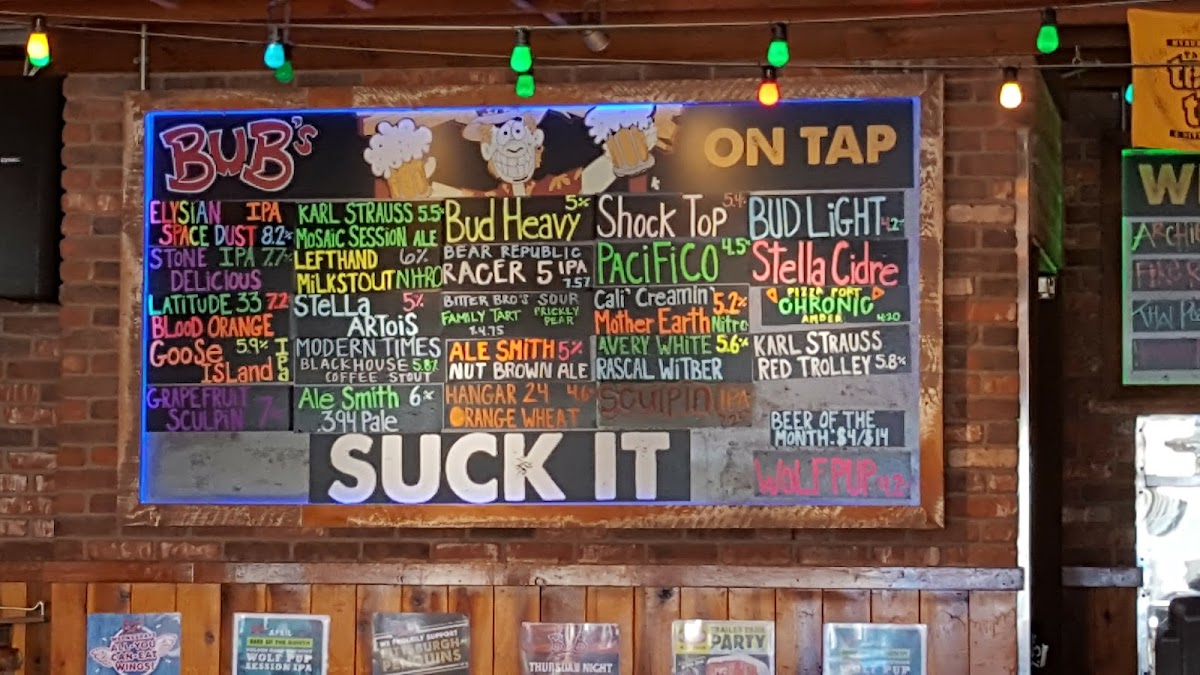 BUB's
ON TAP
ELYSIAN IPA
SPACE DUST 8.2%
STONE IPA 7.7%
DELICIOUS
LATITUDE 33 7.2
BLOOD ORANGE
GOOSE 5.9% IPA
ISLAND
GRAPEFRUIT
SCULPIN 7%
KARL STRAUSS 5.5%
MOSAIC SESSION ALE
LEFTHAND 6%
MILKSTOUT NITRO
STELLA 5%
ARTOIS
MODERN TIMES
BLACKHOUSE 5.8%
COFFEE STOUT
ALE SMITH 6%
.394 PALE
BUD HEAVY 5%
BEAR REPUBLIC
RACER 5 IPA
7.5%
BITTER BRO'S SOUR
FAMILY TART PRICKLY
PEAR
4.75
ALE SMITH 5%
NUT BROWN ALE
HANGAR 24 4.6%
ORANGE WHEAT
SHOCK TOP 5.4%
PACIFICO 4.5%
CALI CREAMIN' 5.2%
MOTHER EARTH Nitro
AVERY WHITE 5.6%
RASCAL WITBER
SCULPIN IPA
BUD LIGHT 4.2%
STELLA CIDRE
PIZZA PORT
CHRONIC
AMBER 4.20
KARL STRAUSS
RED TROLLEY 5.8%
BEER OF THE
MONTH: $4/$14
WOLF PUP 4.2%
SUCK IT
W
ARCHI
THAI
WEDNESDAY
ALL YOU
CAN EAT
WINGS!
APRIL
BEER OF THE MONTH
WOLF PUP
SESSION IPA
WE PROUDLY SUPPORT
PITTSBURGH
PENGUINS
THURSDAY NIGHT
TRAILER PARK
PARTY
WOLF PUP